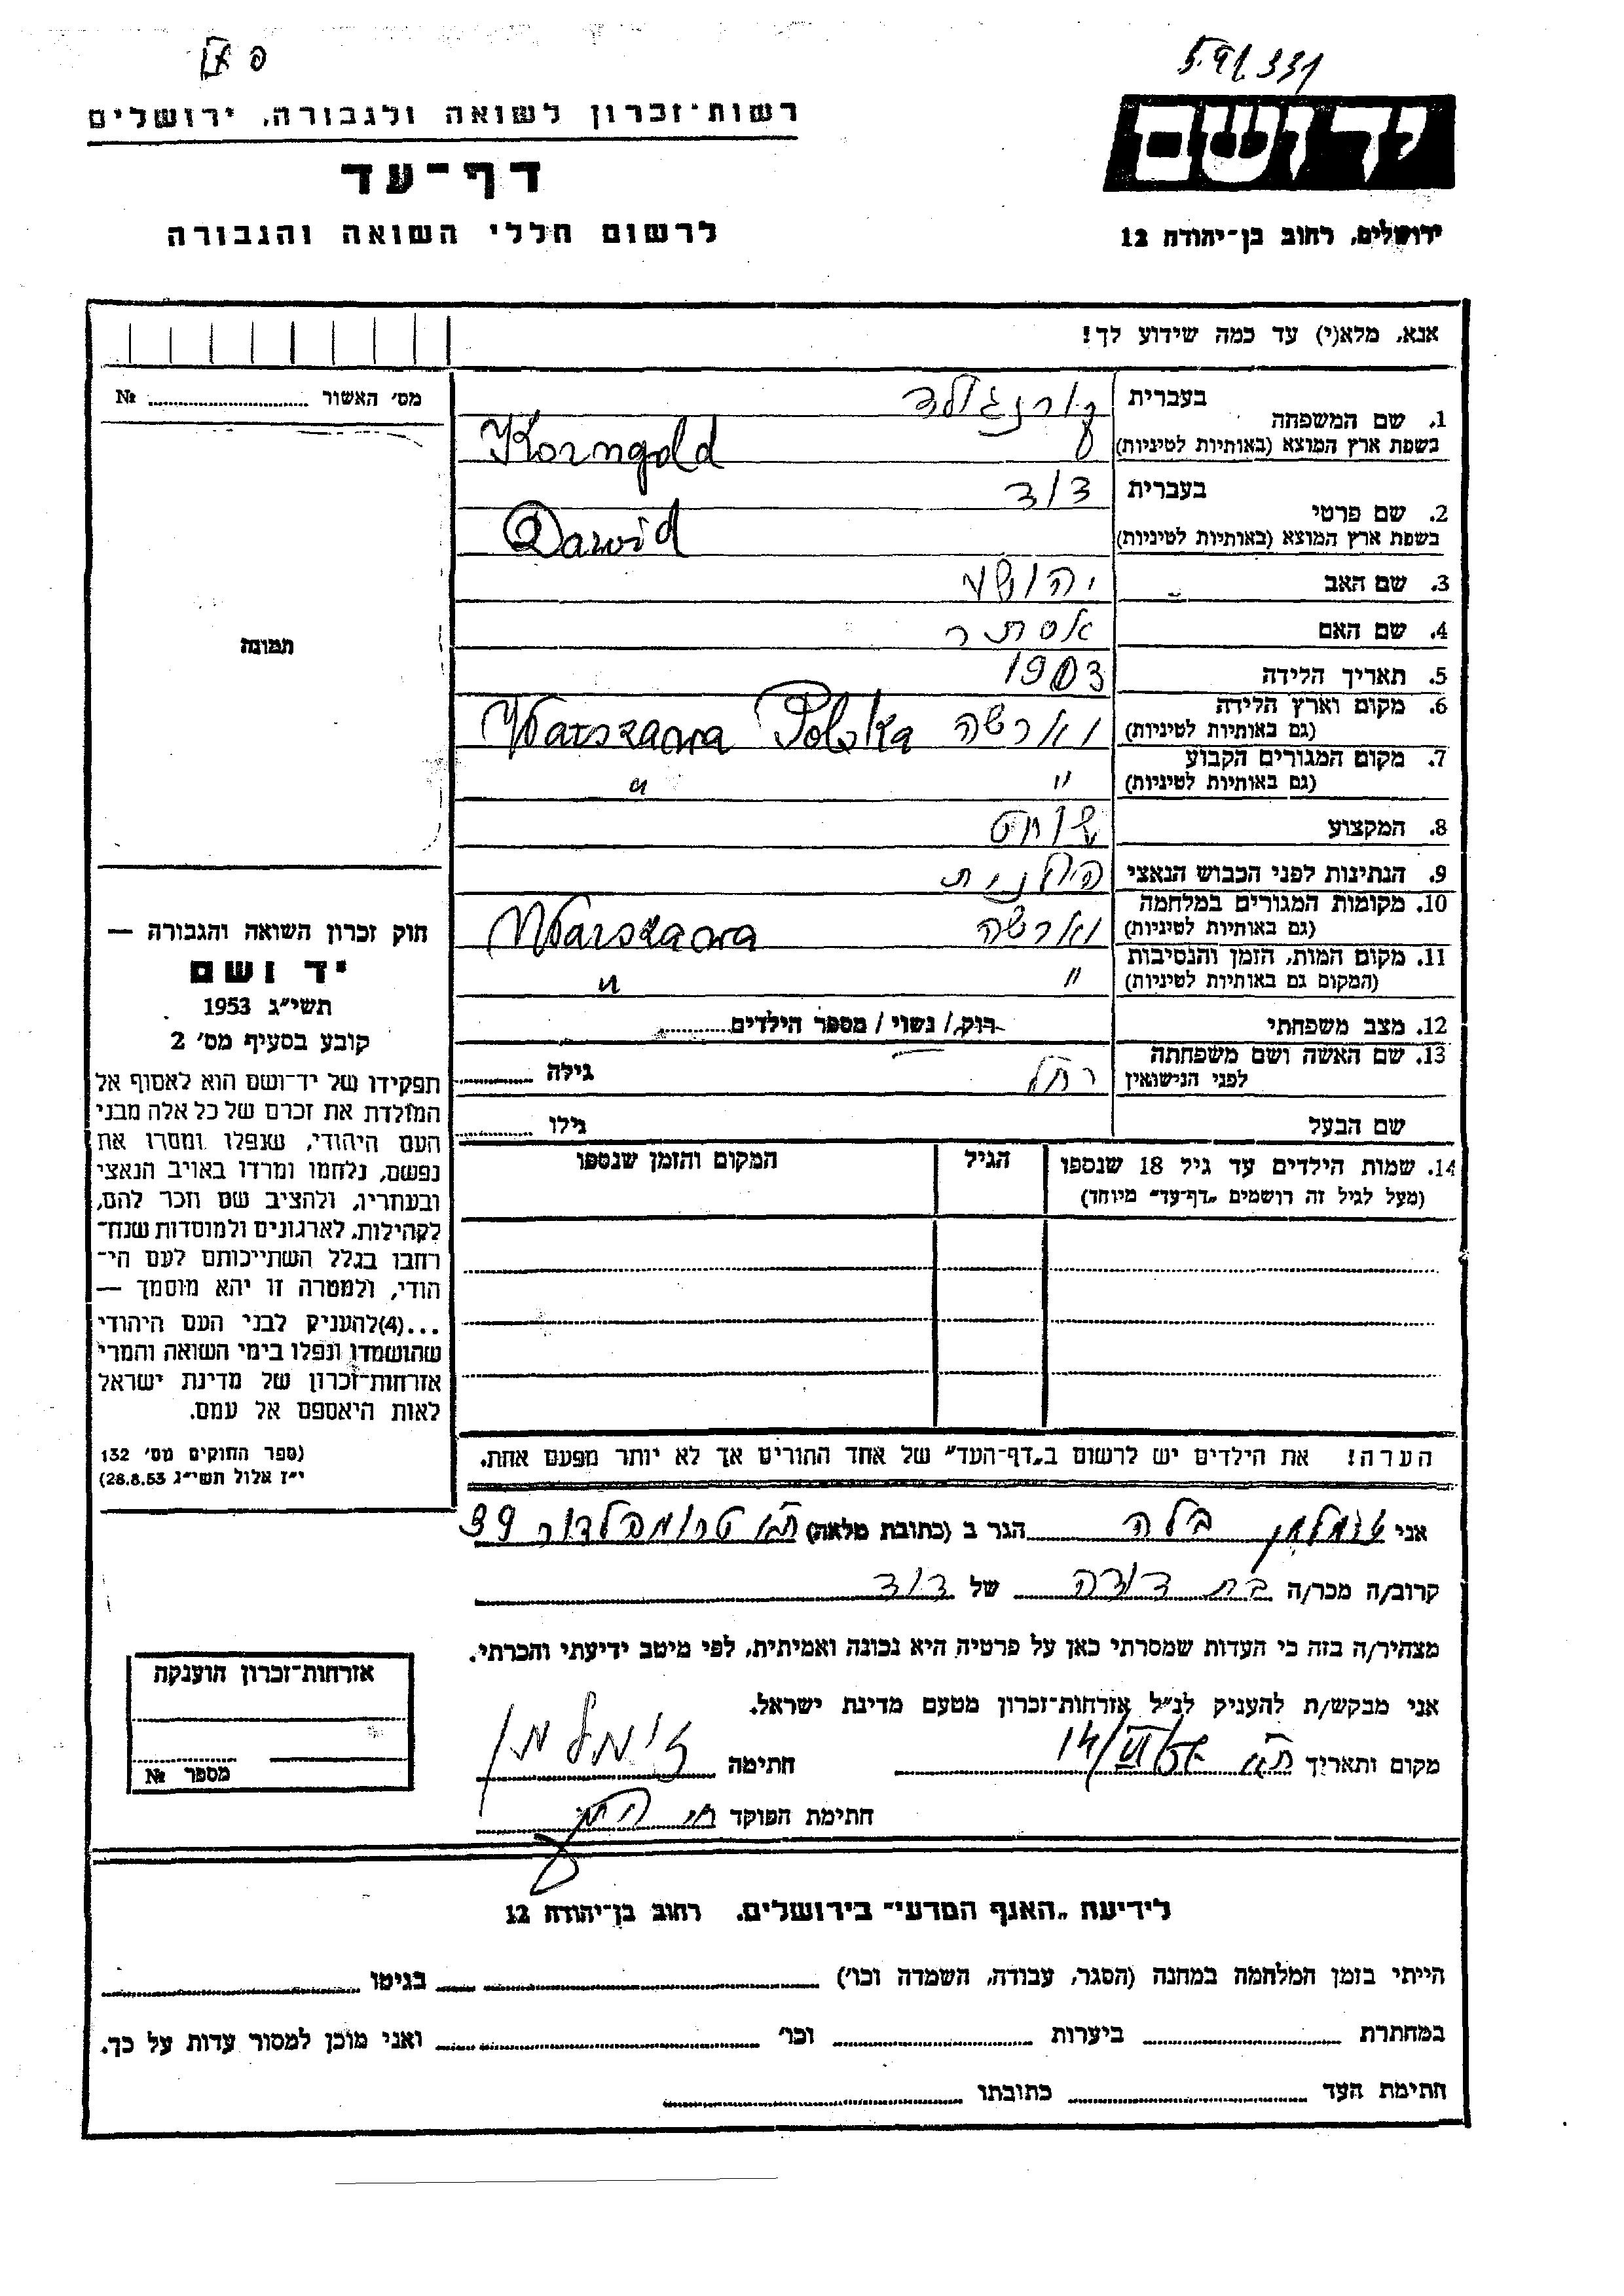 5.9/331
יד ושם
ירושלים, רחוב בן־יהודה 12
רשות־זכרון לשואה ולגבורה, ירושלים
דף־עד
לרשום חללי השואה והגבורה
אנא, מלא(י) עד כמה שידוע לך!
1. שם המשפחה בעברית קורנגולד
בשפת ארץ המוצא (באותיות לטיניות) Korngold
2. שם פרטי בעברית דוד
בשפת ארץ המוצא (באותיות לטיניות) Dawid
3. שם האב יהושע
4. שם האם אסתר
5. תאריך הלידה 1903
6. מקום וארץ הלידה
(גם באותיות לטיניות) וארשה Warszawa Polska
7. מקום המגורים הקבוע
(גם באותיות לטיניות) " "
8. המקצוע שוחט
9. הנתינות לפני הכבוש הנאצי פולנית
10. מקומות המגורים במלחמה
(גם באותיות לטיניות) וארשה Warszawa
11. מקום המות, הזמן והנסיבות
(המקום גם באותיות לטיניות) " "
12. מצב משפחתי רוק/ נשוי/ מספר הילדים
13. שם האשה ושם משפחתה
לפני הנישואין רחל גילה
שם הבעל גילו
14. שמות הילדים עד גיל 18 שנספו הגיל המקום והזמן שנספו
(מעל לגיל זה רושמים „דף־עד" מיוחד)
הערה! את הילדים יש לרשום ב„דף־העד" של אחד ההורים אך לא יותר מפעם אחת.
מס' האשור №
תמונה
חוק זכרון השואה והגבורה —
יד ושם
תשי"ג 1953
קובע בסעיף מס' 2
תפקידו של יד־ושם הוא לאסוף אל
המולדת את זכרם של כל אלה מבני
העם היהודי, שנפלו ומסרו את
נפשם, נלחמו ומרדו באויב הנאצי
ובעוזריו, ולהציב שם וזכר להם,
לקהילות, לארגונים ולמוסדות שנח־
רחבו בגלל השתייכותם לעם הי־
הודי, ולמטרה זו יהא מוסמך —
...(4)להעניק לבני העם היהודי
שהושמדו ונפלו בימי השואה והמרי
אזרחות־זכרון של מדינת ישראל
לאות היאספם אל עמם.
(ספר החוקים מס' 132
י"ז אלול תשי"ג 28.8.53)
אני זימלמן בלה הגר ב (כתובת מלאה) ת"א טרומפלדור 39
קרוב/ה מכר/ה בת דודה של דוד
מצהיר/ה בזה כי העדות שמסרתי כאן על פרטיה היא נכונה ואמיתית, לפי מיטב ידיעתי והכרתי.
אני מבקש/ת להעניק לנ"ל אזרחות־זכרון מטעם מדינת ישראל.
מקום ותאריך ת"א 14/VI חתימה זימלמן
חתימת הפוקד
אזרחות־זכרון הוענקה
מספר №
לידיעת „האגף המדעי" בירושלים, רחוב בן־יהודה 12
הייתי בזמן המלחמה במחנה (הסגר, עבודה, השמדה וכו') בגיטו
במחתרת ביערות וכו' ואני מוכן למסור עדות על כך.
חתימת העד כתובתו